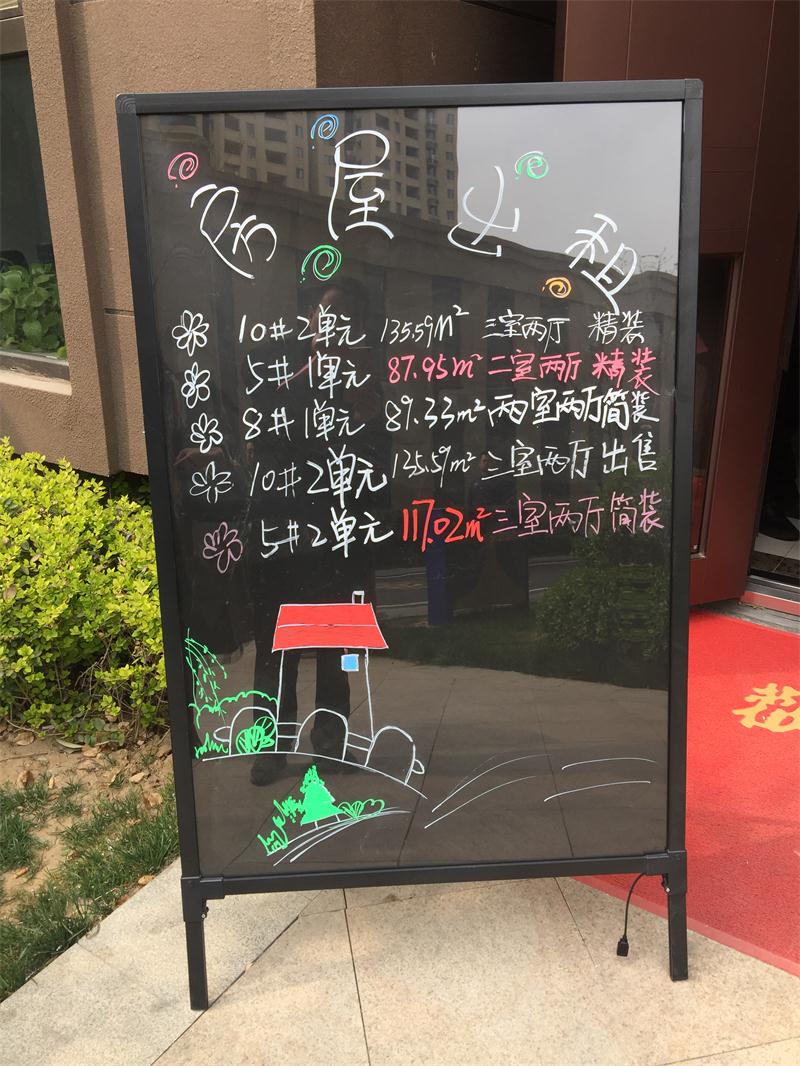 房屋出租
10#2单元 135.59m² 三室两厅 精装
5#1单元 87.95m² 二室两厅 精装
8#1单元 89.33m² 两室两厅简装
10#2单元 135.59m² 三室两厅出售
5#2单元 117.02m² 三室两厅简装